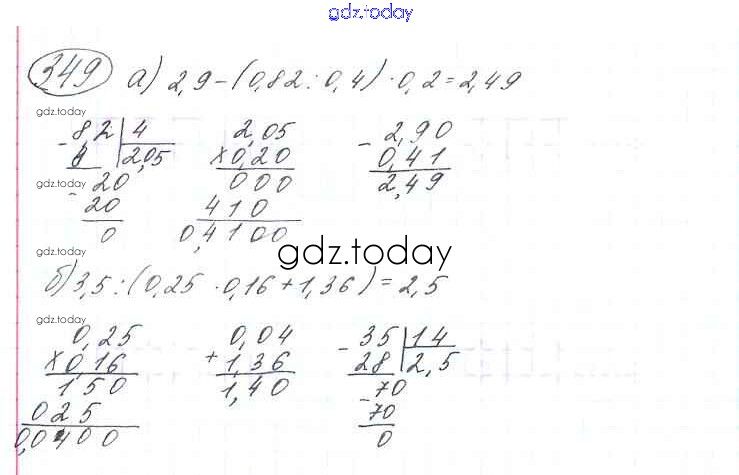 gdz.today
349 а) 2,9-(0,82:0,4)·0,2=2,49
gdz.today
- 8,2 | 4
8 2,05
gdz.today
- 20
20
0
2,05
x 0,20
000
410
0,4100
- 2,90
0,41
2,49
gdz.today
gdz.today
б) 3,5:(0,25·0,16+1,36)=2,5
gdz.today
0,25
x 0,16
1,50
025
0,0400
0,04
+ 1,36
1,40
- 35 | 14
28 2,5
- 70
70
0